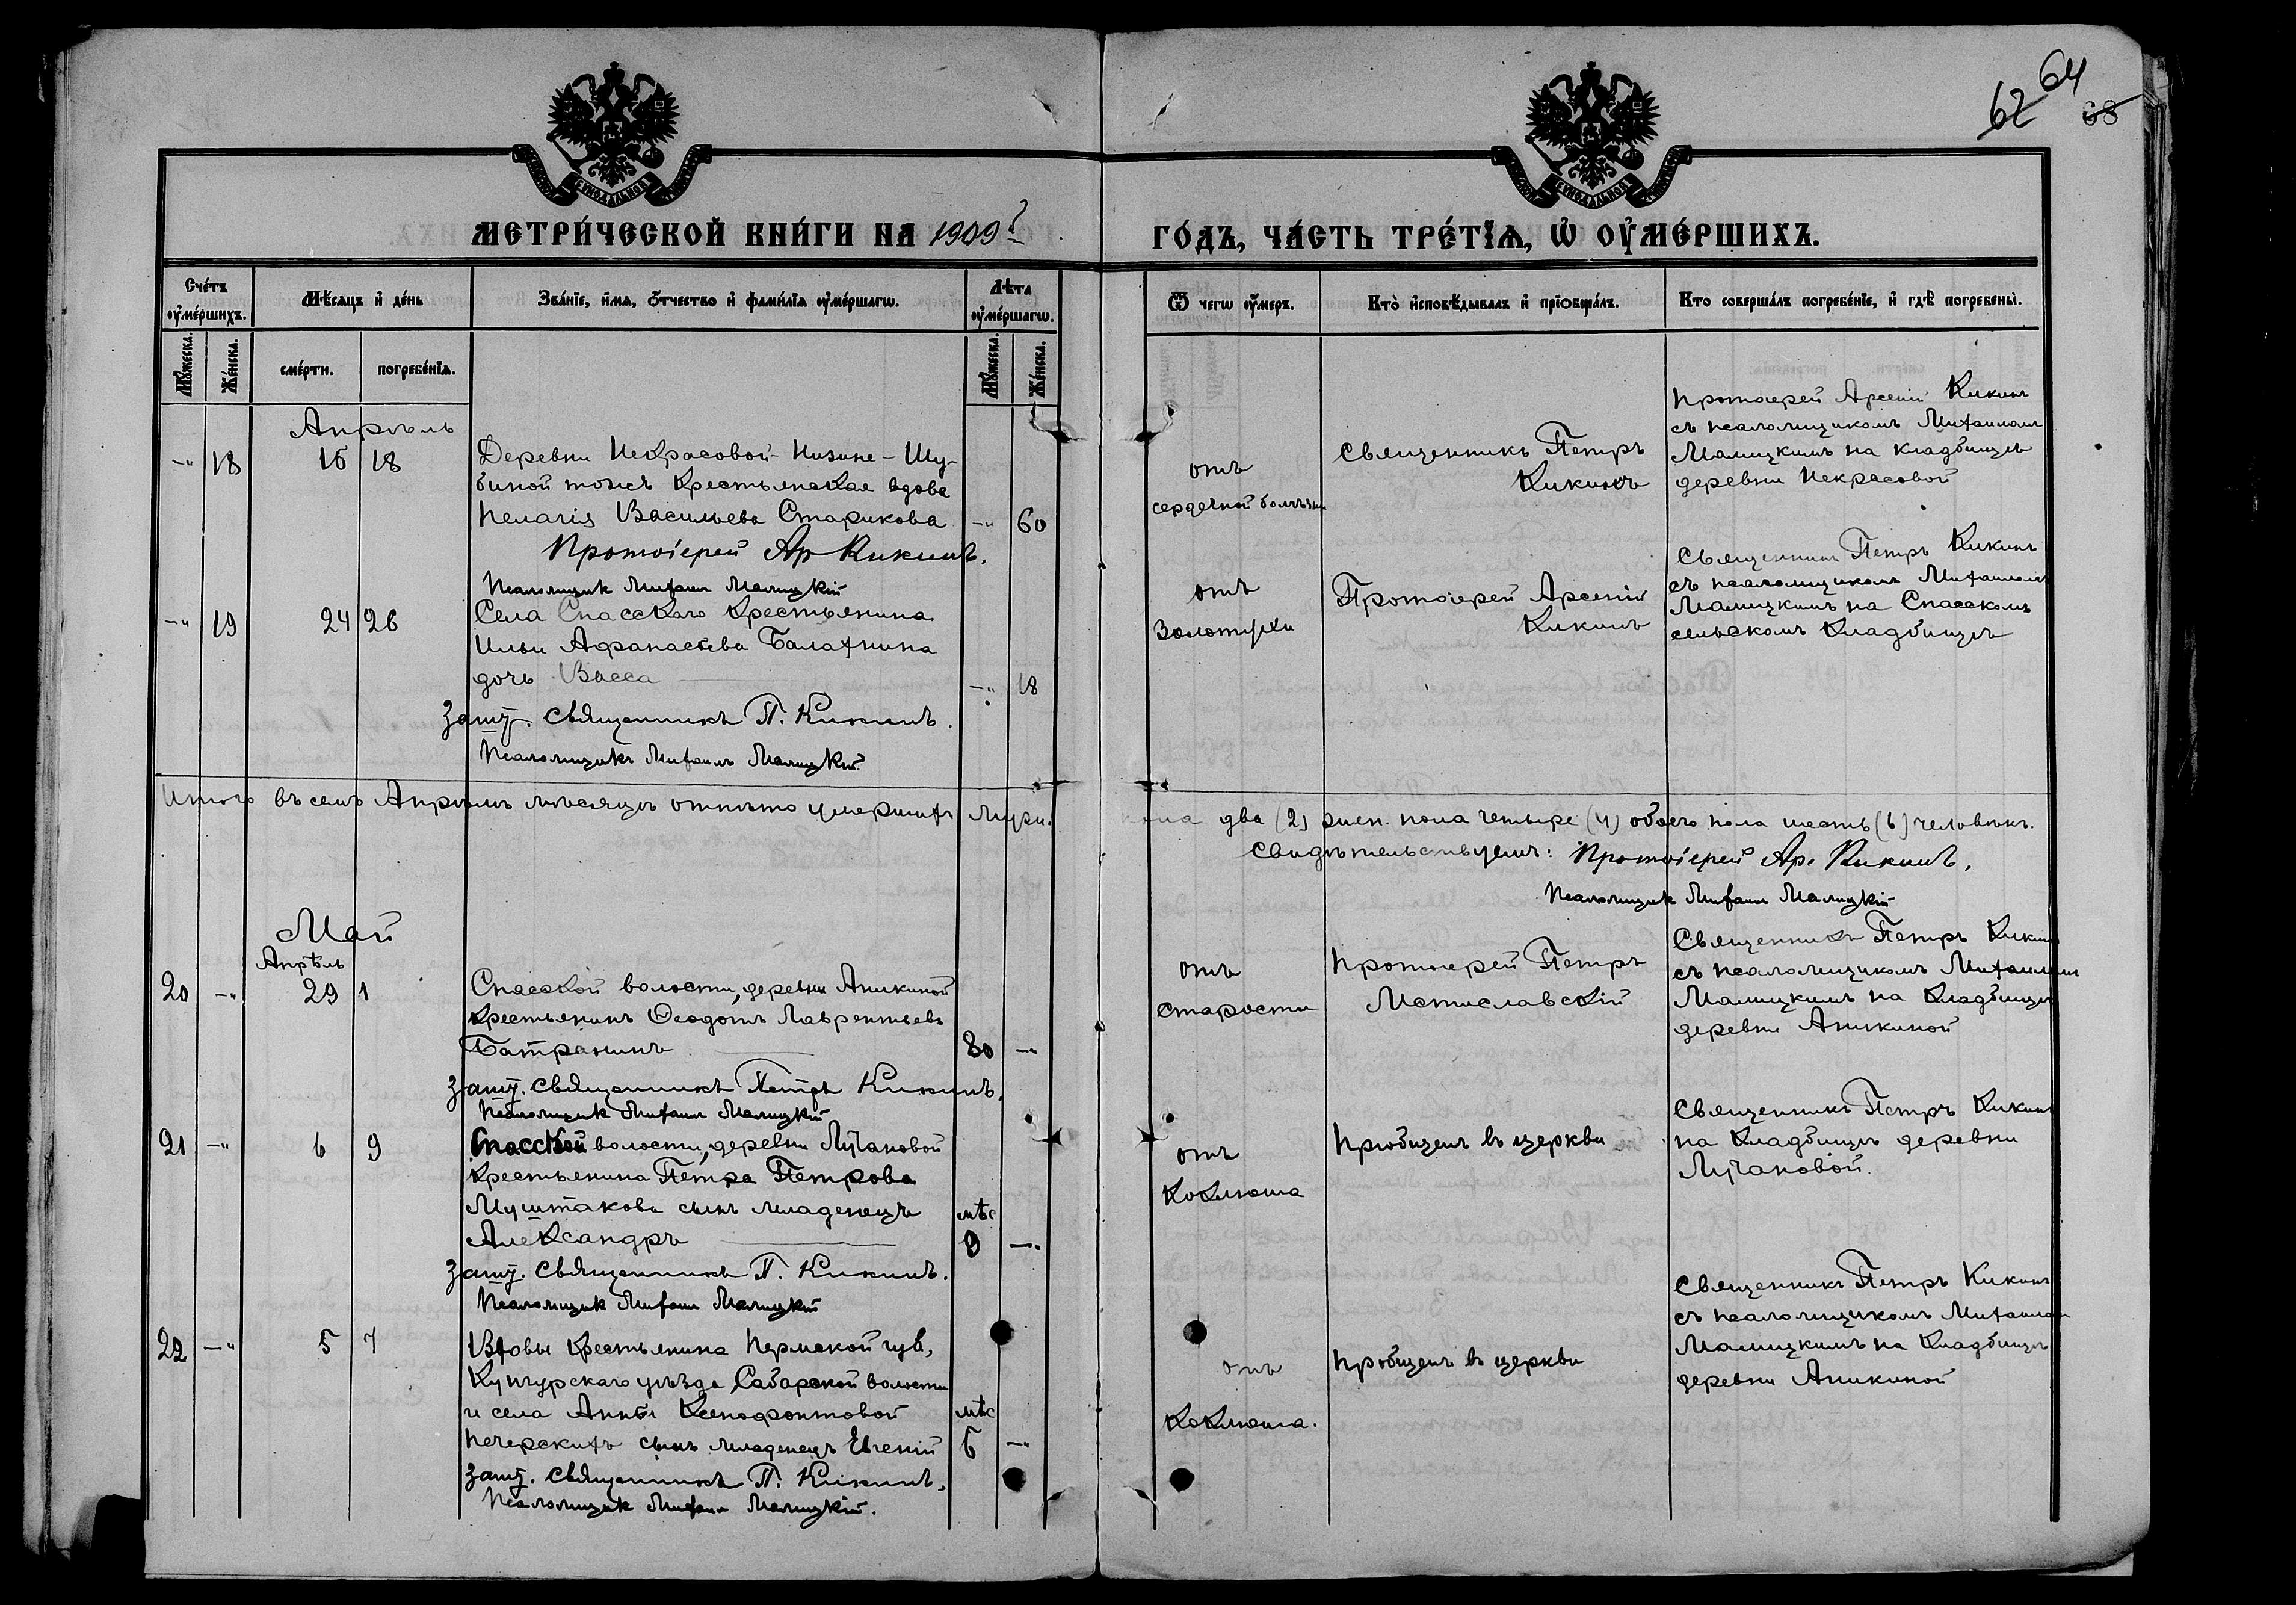 62 64 68
МЕТРИ́ЧЕСКОЙ КНИ́ГИ НА 1909 г.
ГО́ДЪ, ЧА́СТЬ ТРЕ́ТІѦ, Ѡ ОУ҆МЕ́РШИХЪ.
Сче́тъ оу҆ме́ршихъ.
Мѣ́сяцъ и҆ де́нь
Зва́нїе, и҆́мѧ, о҆́тчество и҆ фами́лїѧ оу҆ме́ршагѡ.
Лѣ́та оу҆ме́ршагѡ.
Ѿ чегѡ̀ оу҆́меръ.
Кто̀ и҆сповѣ́дывалъ и҆ прїѡбща́лъ.
Кто соверша́лъ погребе́нїе, и҆ гдѣ̀ погребены̀.
Мꙋ́жеска.
Же́нска.
сме́рти.
погребе́нїѧ.
Мꙋ́жеска.
Же́нска.
Апрѣль
-" 18 16 18
Деревни Некрасовой-Низине-Шу-
биной тожъ крестьянская вдова
Пелагія Васильева Старикова -" 60
Протоіерей Ар Кикинъ.
Псаломщик Михаил Малицкій
отъ
сердечной болѣзни
Священникъ Петръ
Кикинъ
Протоіерей Арсеній Кикинъ
съ псаломщикомъ Михаиломъ
Малицкимъ на кладбищѣ
деревни Некрасовой
-" 19 24 26
Села Спасскаго крестьянина
Ильи Афанасьева Балахнина
дочь Васса -" 18
Защ. Священникъ П. Кикинъ.
Псаломщикъ Михаилъ Малицкій.
отъ
Золотухи
Протоіерей Арсеній
Кикинъ
Священникъ Петръ Кикинъ
съ псаломщикомъ Михаиломъ
Малицкимъ на Спасскомъ
сельскомъ кладбищѣ
Итого въ семъ Апрѣлѣ мѣсяцѣ отпѣто умершихъ муж. пола два (2) жен. пола четыре (4) обоего пола шесть (6) человѣкъ.
Свидѣтельствуемъ: Протоіерей Ар. Кикинъ.
Псаломщик Михаил Малицкій
Май
Апрѣль
20 -" 29 1
Спасской волости, деревни Аникиной
крестьянинъ Ѳеодотъ Лаврентьевъ
Батракинъ 80 -"
Защ. Священникъ Петръ Кикинъ.
Псаломщик Михаил Малицкій
отъ
старости
Протоіерей Петръ
Мстиславскій
Священникъ Петръ Кикинъ
съ псаломщикомъ Михаиломъ
Малицкимъ на кладбищѣ
деревни Аникиной
21 -" 6 9
Спасской волости, деревни Лучановой
крестьянина Петра Петрова
Муштакова сынъ младенецъ мѣс
Александръ 9 -"
Защ. Священникъ П. Кикинъ.
Псаломщик Михаил Малицкій
отъ
Коклюша
Пріобщенъ въ церкви
Священникъ Петръ Кикинъ
на кладбищѣ деревни
Лучановой.
22 -" 5 7
Вдовы крестьянина Пермской губ.,
Кунгурскаго уѣзда, Сабарской волости
и села Анны Ксенофонтовой мѣс
Печерскихъ сынъ младенецъ Евгеній 5 -"
Защ. Священникъ П. Кикинъ.
Псаломщик Михаил Малицкій.
отъ
Коклюша.
Пріобщенъ въ церкви
Священникъ Петръ Кикинъ
съ псаломщикомъ Михаиломъ
Малицкимъ на кладбищѣ
деревни Аникиной